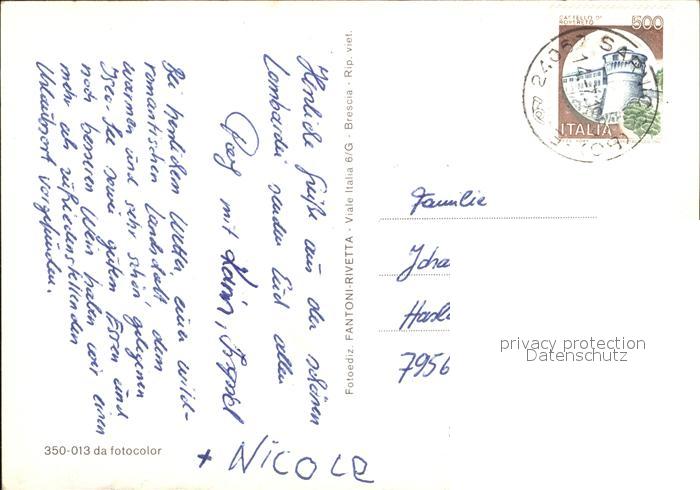 Herrliche Grüße aus der schönen
Lombardei senden Euch allen
mit Karin,
Bei herrlichem Wetter, einer wild-
romantischen Landschaft, dem
warmen und sehr schön gelegenen
Iseo-See sowie gutem Essen und
noch besseren Wein haben wir einen
mehr als zufriedenstellenden
Urlaubsort vorgefunden.
+ NICOLE
350-013 da fotocolor
Fotoediz. FANTONI-RIVETTA - Viale Italia 6/G - Brescia - Rip. viet.
CASTELLO DI
ROVERETO
500
ITALIA
24067
Familie
7956
privacy protection
Datenschutz